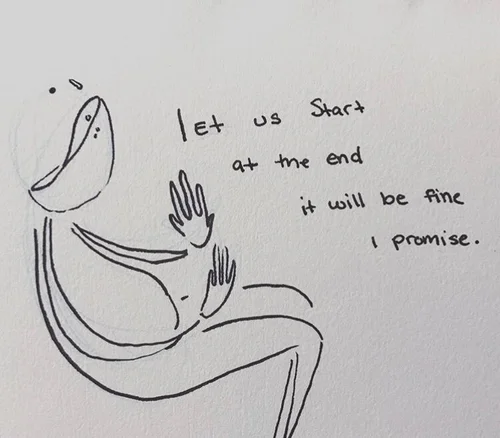 let us start
at the end
it will be fine
I promise.